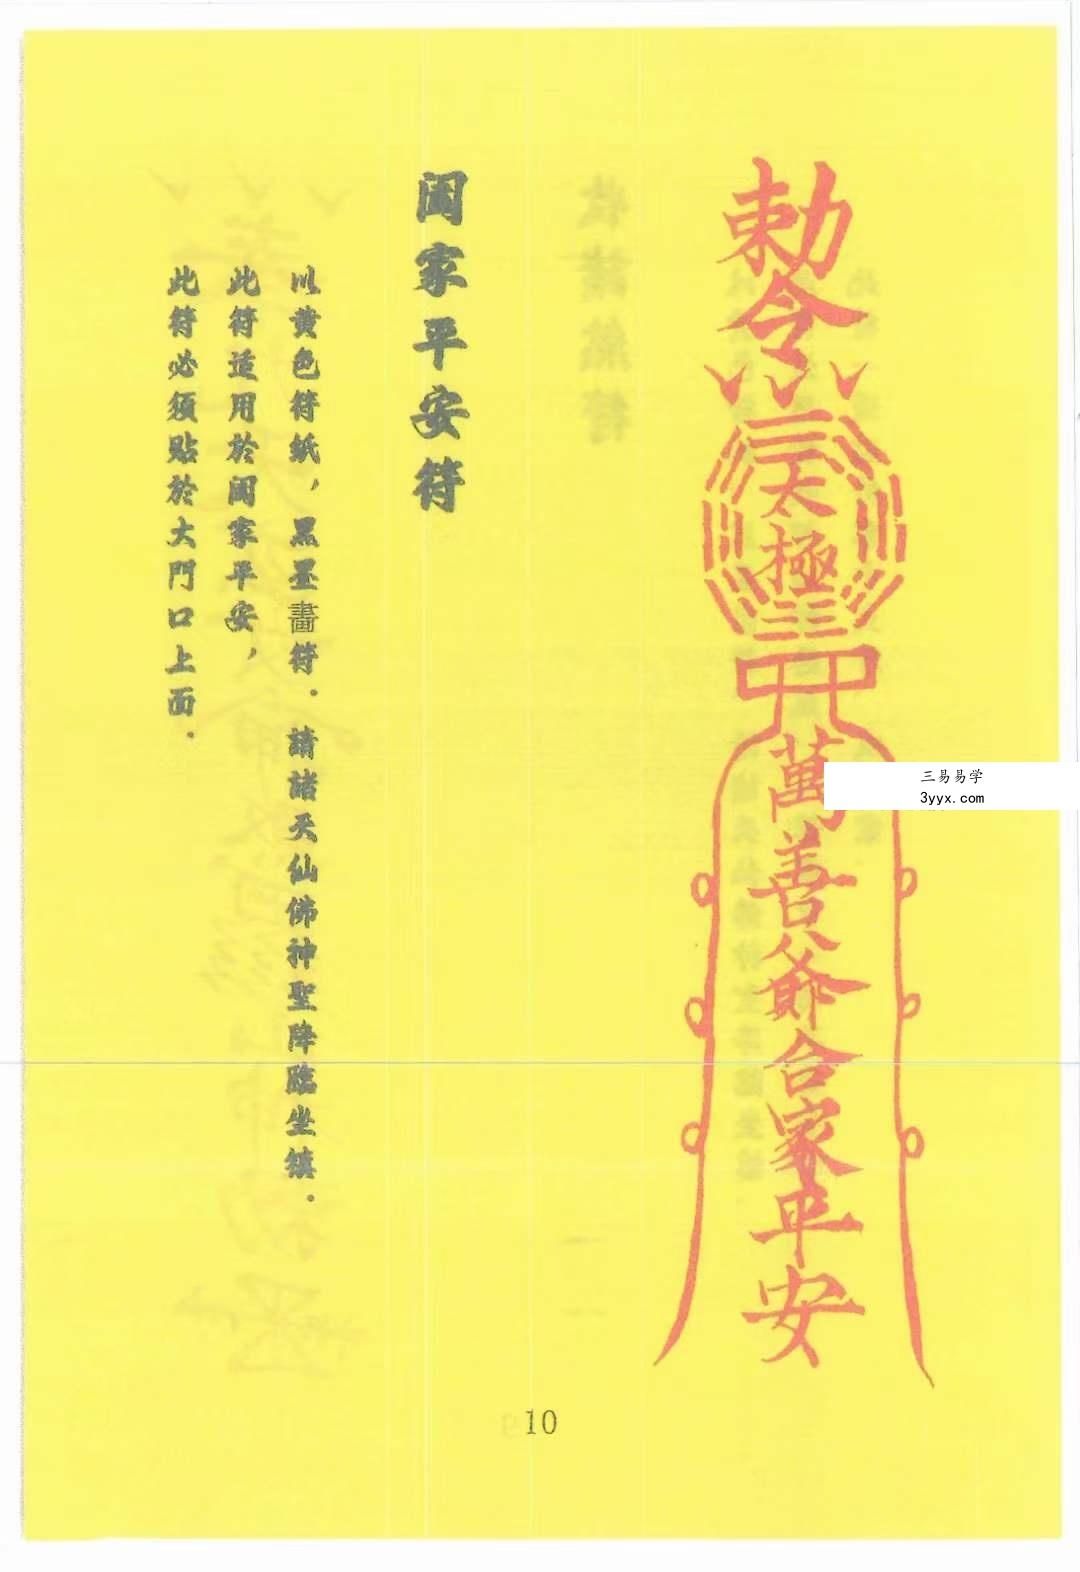 勅令
太極
萬善爺合家平安
三易易学
3yyx.com
闔家平安符
以黄色符紙，黑墨畵符．請諸天仙佛神聖降臨坐鎮．
此符适用於闔家平安，
此符必須貼於大門口上面．
10